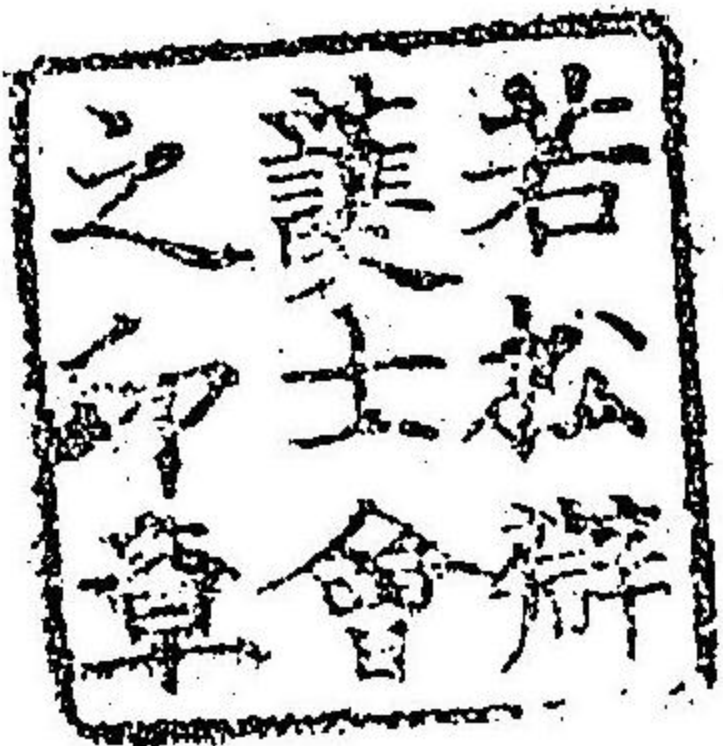 若松辯
護士會
之印章